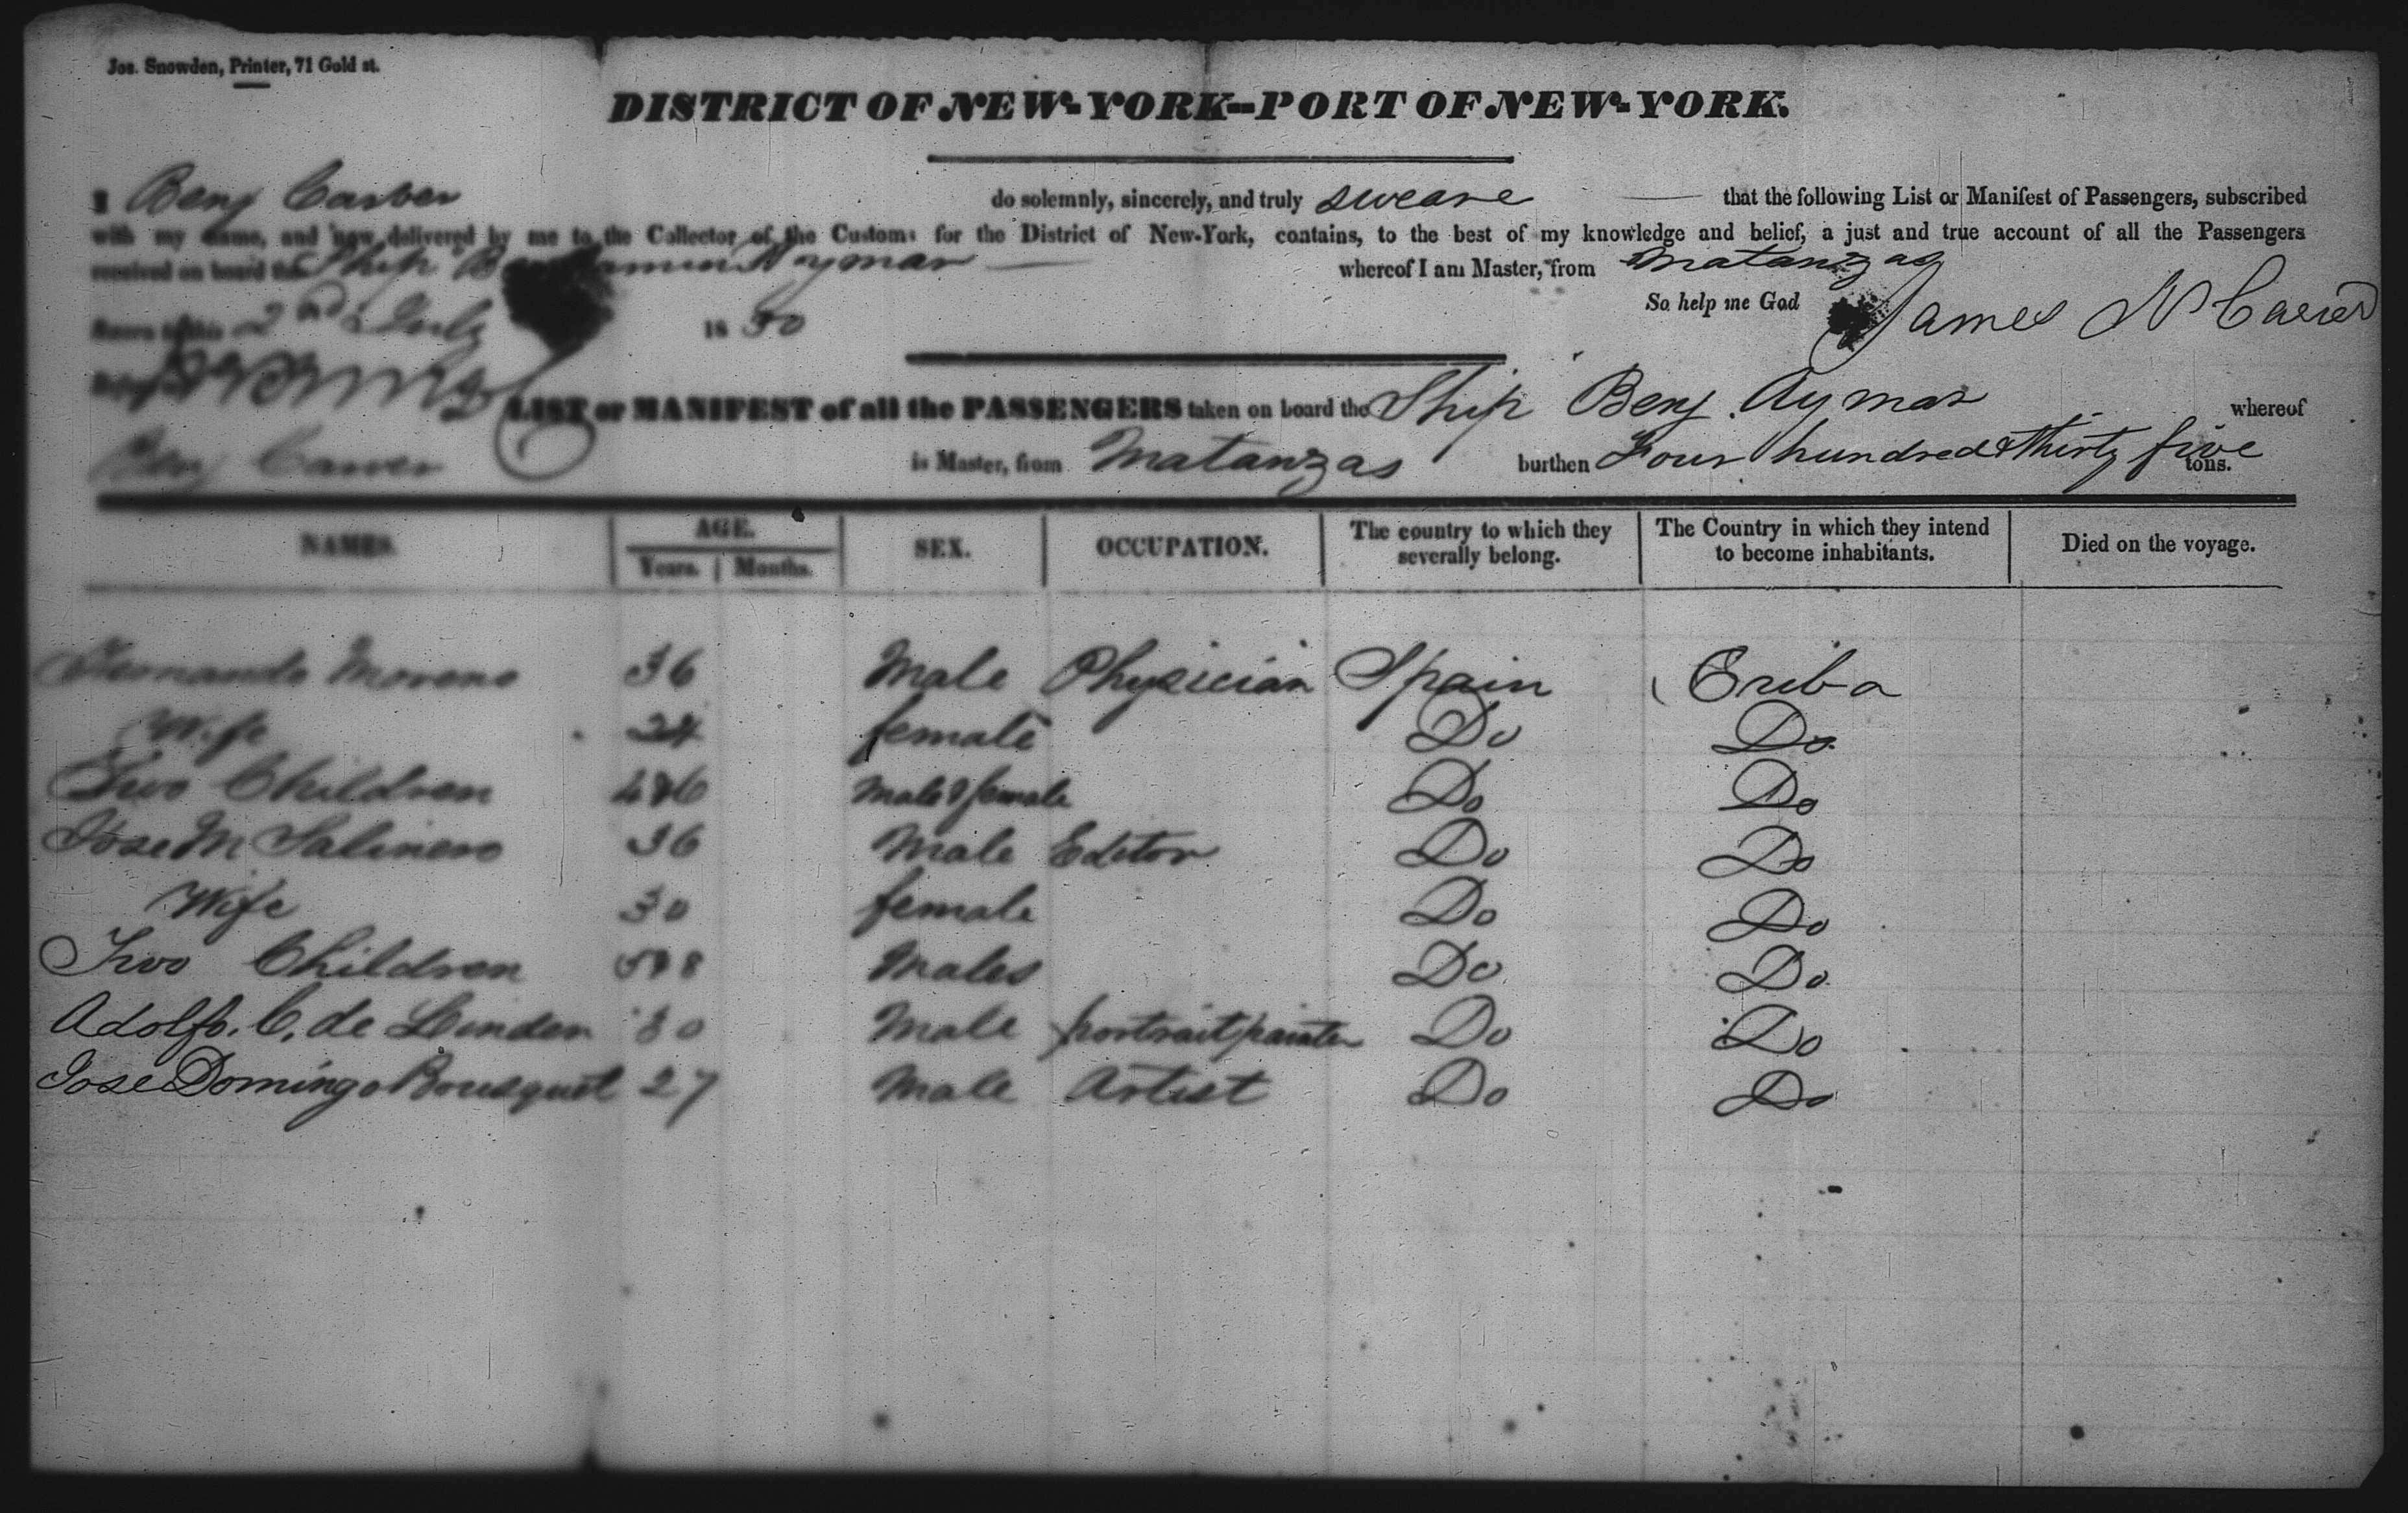 Jos. Snowden, Printer, 71 Gold st.
DISTRICT OF NEW-YORK--PORT OF NEW-YORK.
I Benj Carver do solemnly, sincerely, and truly sweare that the following List or Manifest of Passengers, subscribed
with my name, and now delivered by me to the Collector of the Customs for the District of New-York, contains, to the best of my knowledge and belief, a just and true account of all the Passengers
received on board the Ship Benjamin Aymar whereof I am Master, from Matanzas
So help me God
Sworn to this 2nd July 1850 James N Carver
LIST or MANIFEST of all the PASSENGERS taken on board the Ship Benj. Aymar whereof
Benj Carver is Master, from Matanzas burthen Four hundred & thirty five tons.
NAMES. AGE. SEX. OCCUPATION. The country to which they severally belong. The Country in which they intend to become inhabitants. Died on the voyage.
Years. Months.
Fernando Moreno 36 Male Physician Spain
Wife 24 female Do Do
Two Children 4&6 Male & female Do Do
Jose M Salinero 36 Male Editor Do Do
Wife 30 female Do Do
Two Children 5&8 Males Do Do
Adolfo. C. de Linden 30 Male portrait painter Do Do
Jose Domingo Bousquet 27 Male Artist Do Do